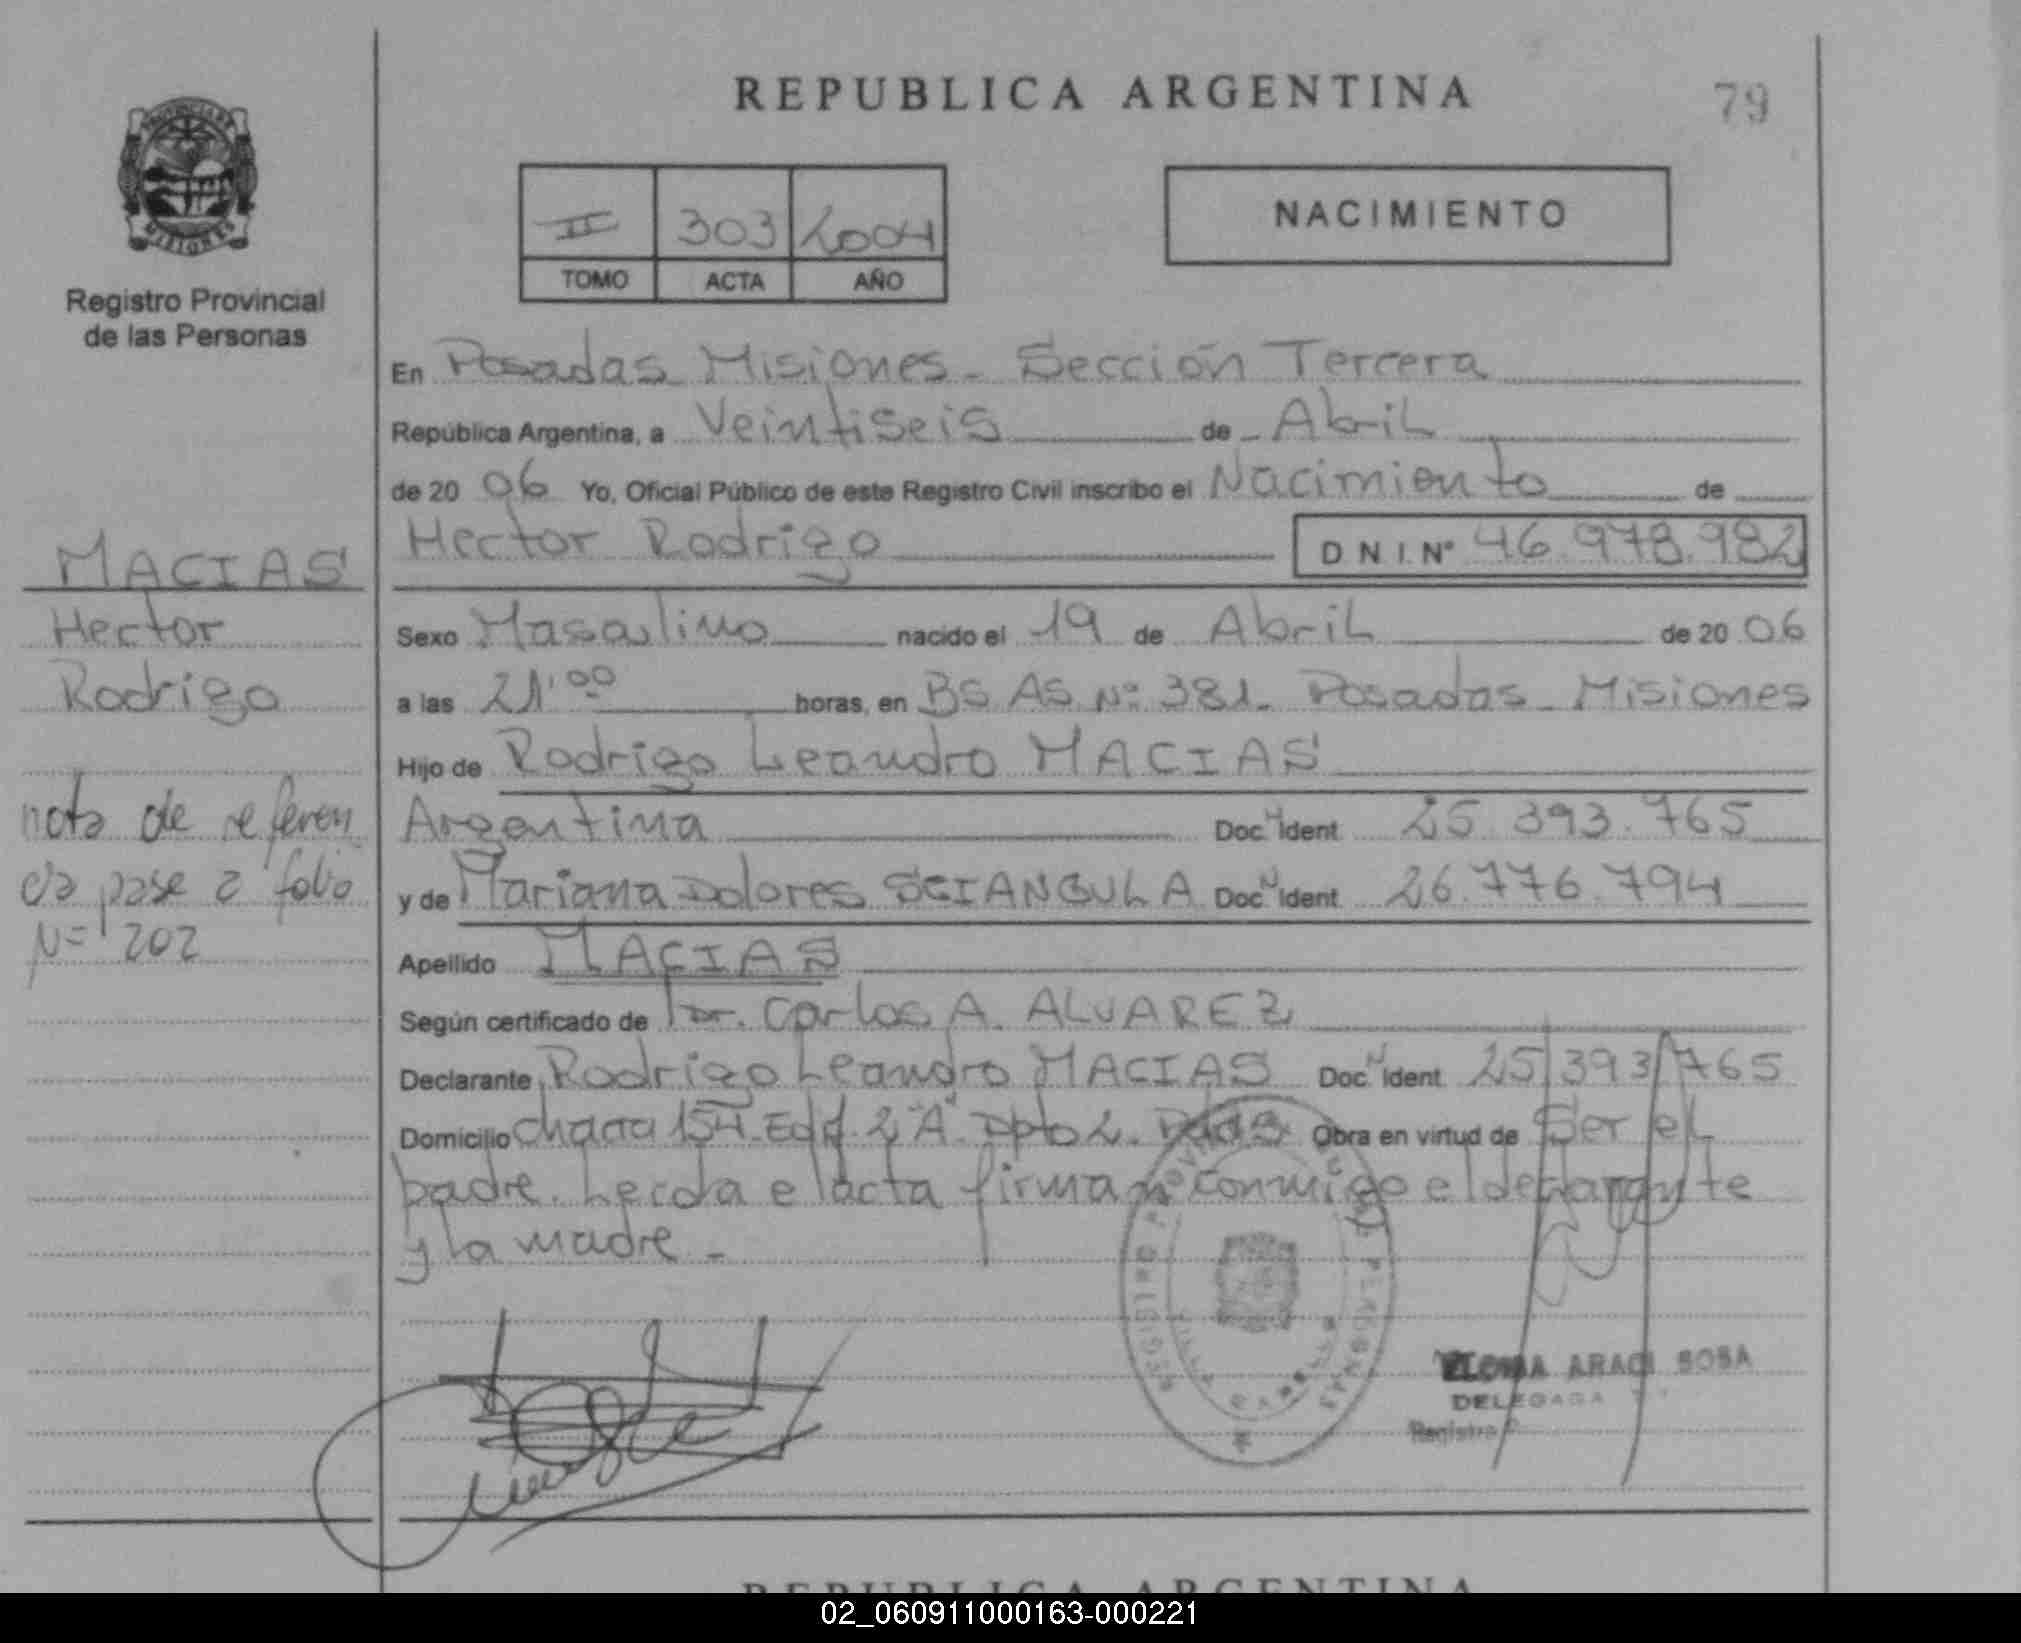 REPUBLICA ARGENTINA
79
PROVINCIA DE
MISIONES
Registro Provincial
de las Personas
II 303 2004
TOMO ACTA AÑO
NACIMIENTO
En Posadas Misiones - Sección Tercera
República Argentina, a Veintiseis de Abril
de 20 06 Yo, Oficial Público de este Registro Civil inscribo el Nacimiento de
Hector Rodrigo D N I. Nº 46.978.982
MACIAS
Hector
Rodrigo
nota de referen
cia pase a folio
N= 202
Sexo Masculino nacido el 19 de Abril de 20 06
a las 21'00 horas, en BS AS Nº 381. Posadas - Misiones
Hijo de Rodrigo Leandro MACIAS
Argentina Doc. N Ident 25.393.765
y de Mariana Dolores SCIANGULA Doc. N Ident 26.776.794
Apellido MACIAS
Según certificado de Dr. Carlos A. ALVAREZ
Declarante Rodrigo Leandro MACIAS Doc. N Ident 25 393 765
Domicilio chacra 154. Edif. 2 "A" Dpto 2. Pdas Obra en virtud de Ser el
padre. Leida el acta firman conmigo el declarante
y la madre -
ARACI SOSA
DELEGADA
Registro P
REPUBLICA ARGENTINA
02_060911000163-000221